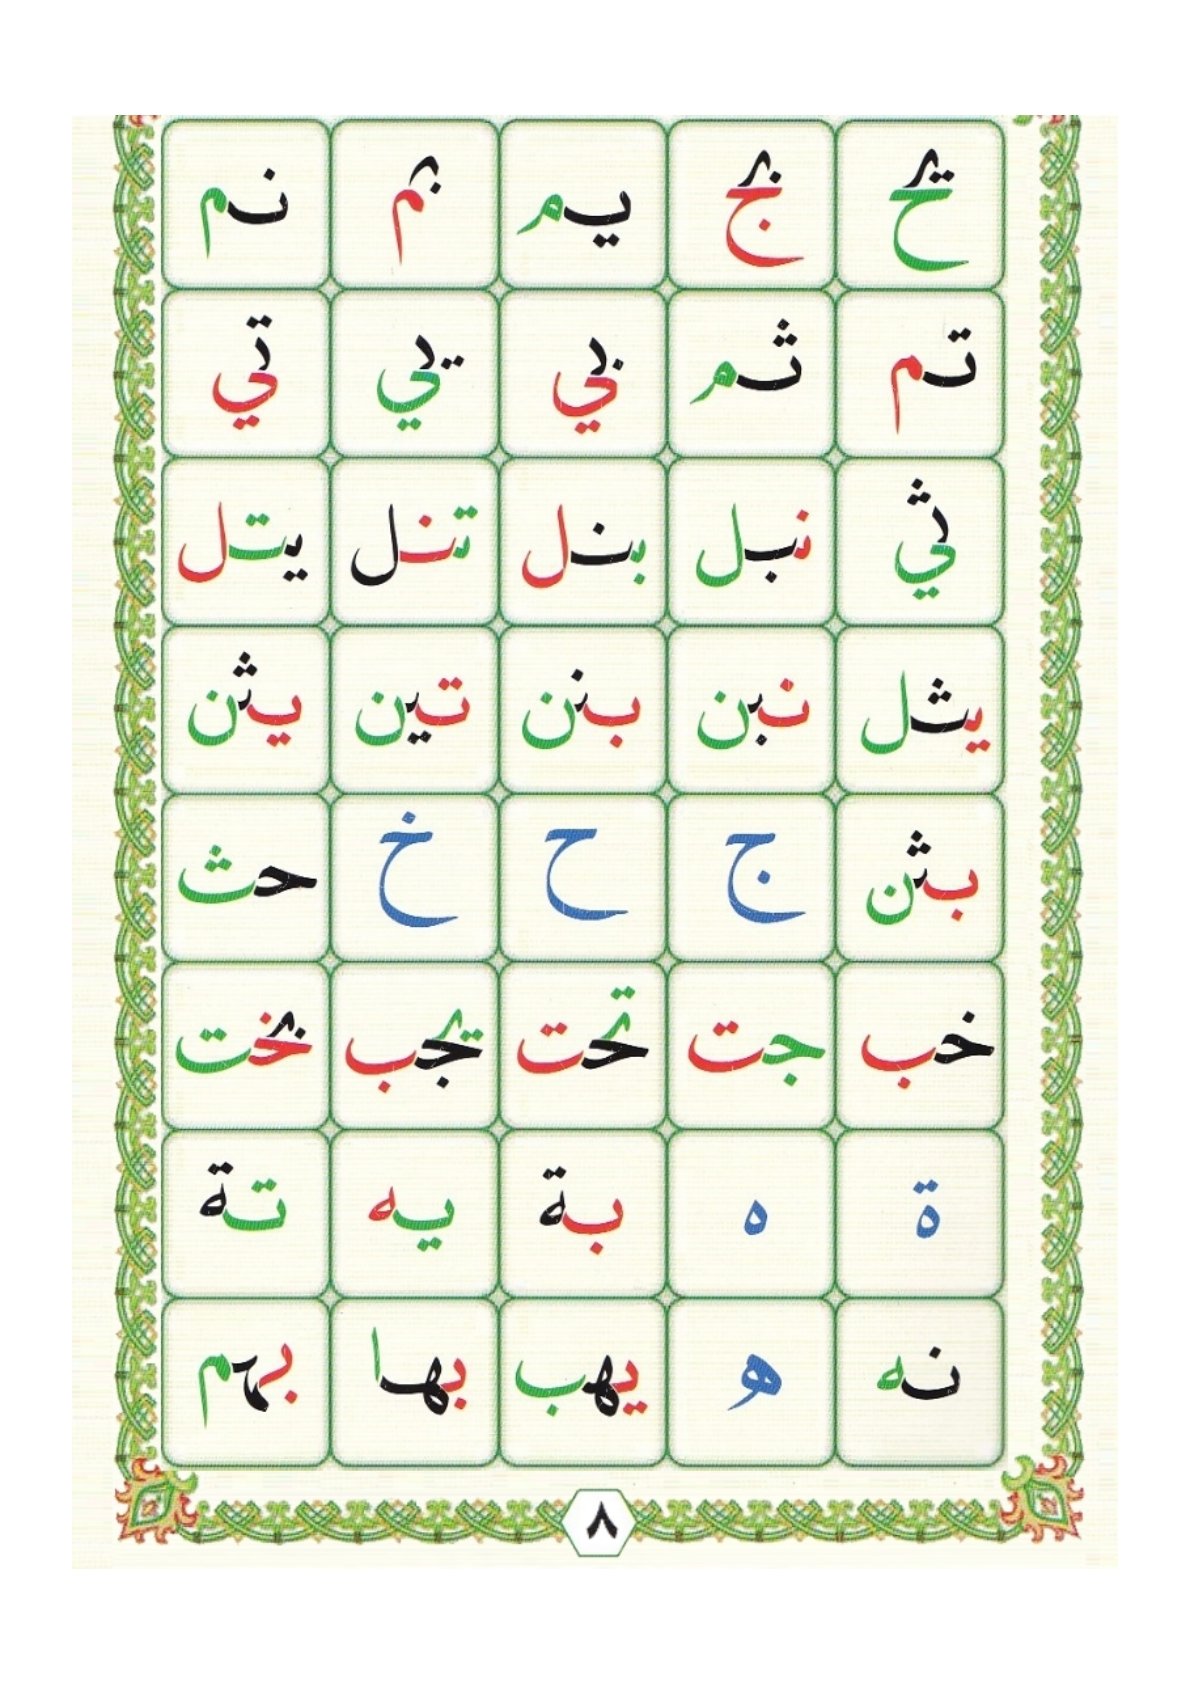 يح بج يم بم نم
تم ثم بي يي تي
ثي نبل بنل تنل يتل
يثل نبن بنن تين يثن
بثن ج ح خ حث
خب جت تحت يجب بخت
ة ه بة يه تة
نه ه يهب بها بهم
٨